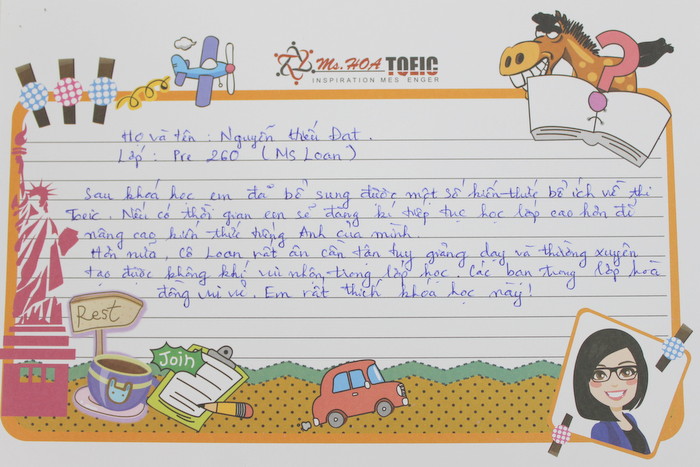 Ms. HOA TOEIC
INSPIRATION MESSENGER
Họ và tên : Nguyễn Thiếu Đạt.
Lớp : Pre 260 (Ms Loan)
Sau khoá học em đã bổ sung được một số kiến thức bổ ích về thi
Toeic. Nếu có thời gian em sẽ đăng kí tiếp tục học lớp cao hơn để
nâng cao kiến thức tiếng Anh của mình.
Hơn nữa, cô Loan rất ân cần tận tuỵ giảng dạy và thường xuyên
tạo được không khí vui nhộn trong lớp học. Các bạn trong lớp hoà
đồng vui vẻ. Em rất thích khoá học này!
Rest
Join